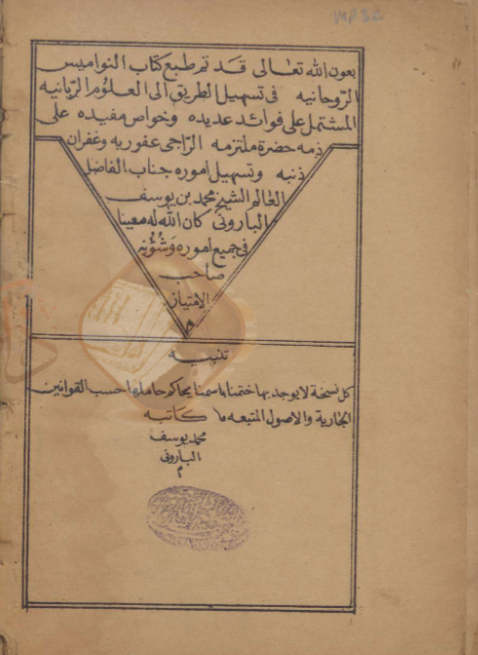 بعون الله تعالى قد تم طبع كتاب النواميس
الروحانيه فى تسهيل الطريق الى العلوم الربانيه
المشتمل على فوائد عديده وخواص مفيده على
ذمه حضرة ملتزمه الراجى عفو ربه وغفران
ذنبه وتسهيل اموره جناب الفاضل
العالم الشيخ محمد بن يوسف
البارونى كان الله له معينا
فى جميع اموره وشؤنه
صاحب
الامتياز
م
تنبيه
كل نسخة لا يوجد بها ختمنا باسمنا يحاكم حاملها حسب القوانين
الجارية والاصول المتبعه م كاتبه
محمد يوسف
البارونى
م